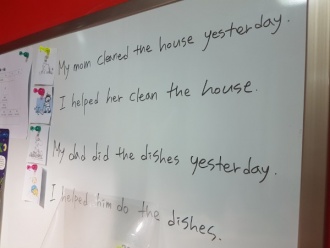 My mom cleaned the house yesterday.
I helped her clean the house.
My dad did the dishes yesterday.
I helped him do the dishes.